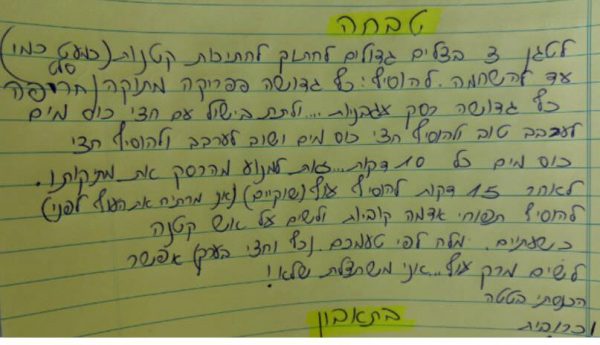 טבחה
לטגן 3 בצלים גדולים לחתוך לחתיכות קטנות (כמעט כמו סלט)
עד להשחמה. להוסיף: כף גדושה פפריקה מתוקה/חריפה
כף גדושה רסק עגבניות .... ולתת בישול עם חצי כוס מים
לערבב טוב ולהוסיף חצי כוס מים ושוב לערבב ולהוסיף חצי
כוס מים כל 10 דקות... זאת למנוע מהרסק את מתיקותו.
לאחר 15 דקות להוסיף עוף (שוקיים) (אני מרתיח את העוף לפני)
להוסיף תפוחי אדמה קוביות ולשים על אש קטנה
כשעתיים. מלח לפי טעמכם (כף וחצי בערך) אפשר
לשים מרק עוף... אני משתדלת שלא!
הכנסתי בטטה
וכרובית
בתאבון